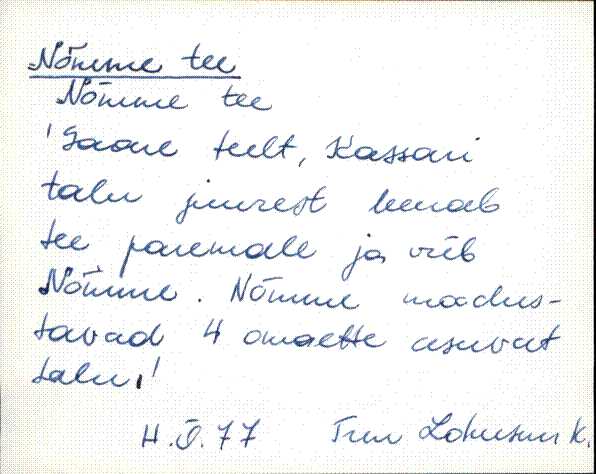 Nõmme tee
Nõmme tee
'Saare teelt, Kassari
talu juurest keerab
tee paremale ja viib
Nõmme. Nõmme moodus-
tavad 4 omaette asuvat
talu.'
H. 77 K.